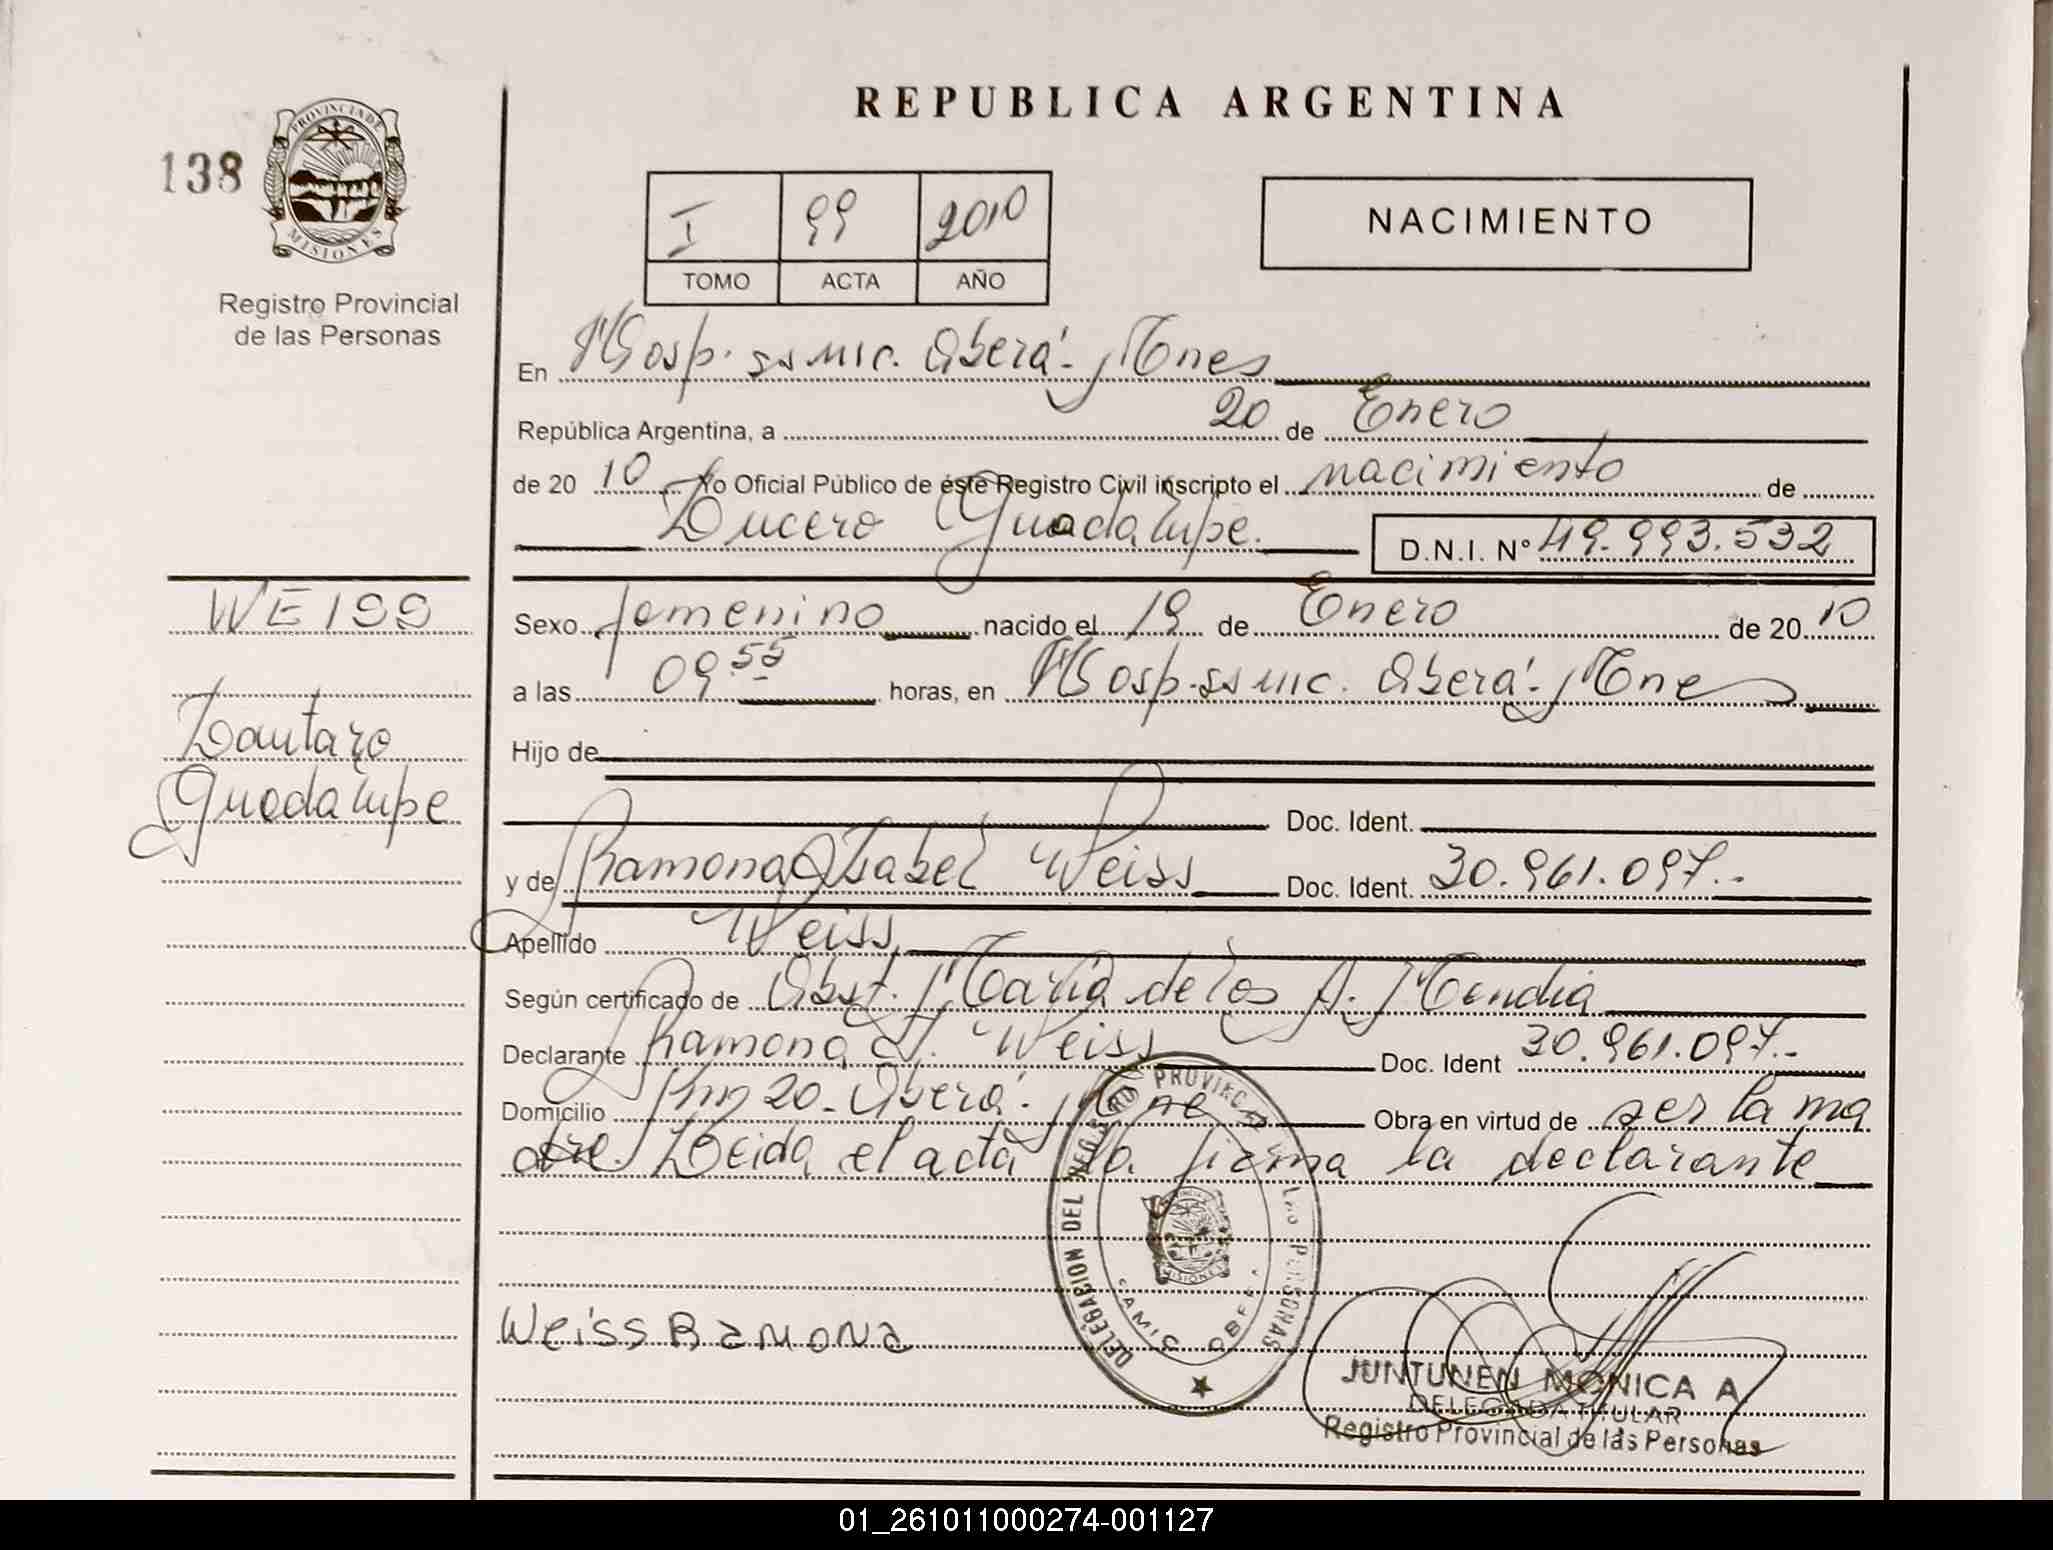 REPUBLICA ARGENTINA
138
PROVINCIA DE
MISIONES
Registro Provincial
de las Personas
I 99 2010
TOMO ACTA AÑO
NACIMIENTO
En Hosp. ss mic. Oberá - Mnes
República Argentina, a 20 de Enero
de 20 10 Yo Oficial Público de éste Registro Civil inscripto el nacimiento de
Lucero Guadalupe. D.N.I. Nº 49.993.532
WEISS
Lautaro
Guadalupe
Sexo femenino nacido el 19 de Enero de 20 10
a las 09 55 horas, en Hosp. ss mic. Oberá - Mnes
Hijo de
Doc. Ident.
y de Ramona Isabel Weiss Doc. Ident. 30.961.097.-
Apellido Weiss
Según certificado de Obst. María de los A. Mendia
Declarante Ramona I. Weiss Doc. Ident 30.961.097.-
Domicilio Km 20 - Oberá - Mnes Obra en virtud de ser la ma
dre. Leida el acta la firma la declarante
DELEGACION DEL REGISTRO PROVINCIAL DE LAS PERSONAS
MISIONES
Weiss Ramona
JUNTUNEN MONICA A.
DELEGADA TITULAR
Registro Provincial de las Personas
01_261011000274-001127